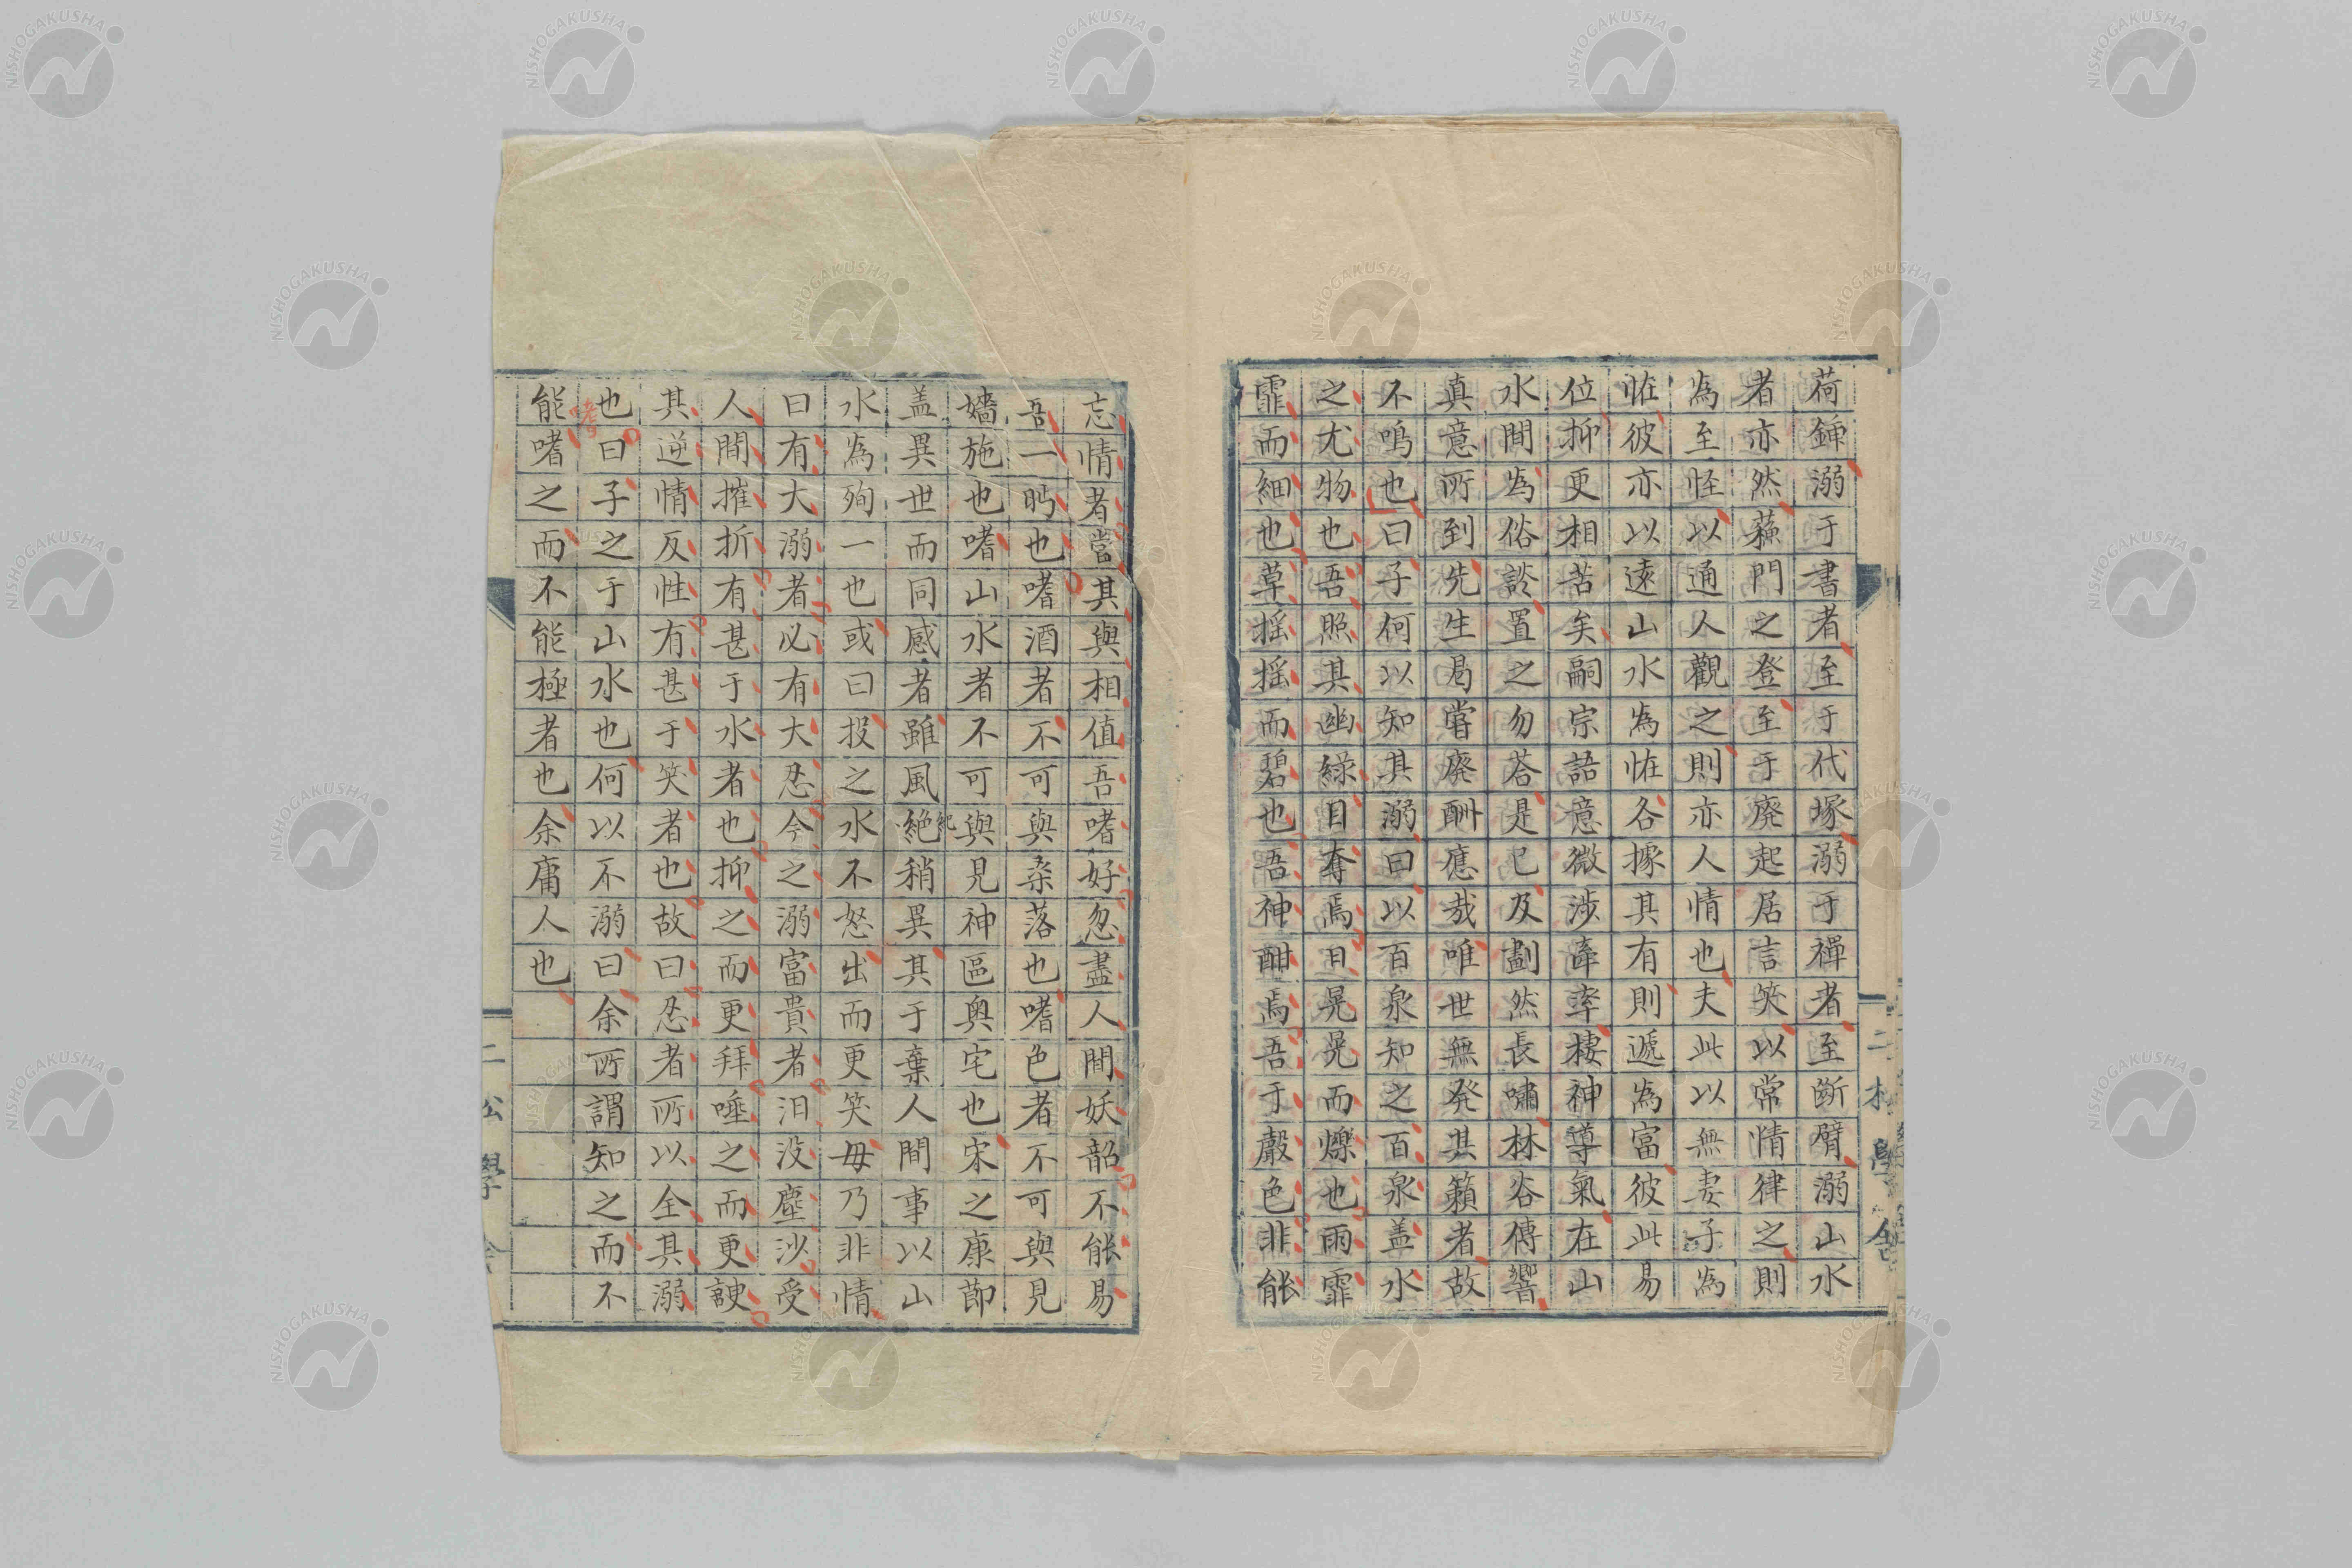 荷鍤溺于書者至于代塚溺于禪者至斷臂溺山水
者亦然蘓門之登至于廃起居言笑以常情律之則
為至怪以通人觀之則亦人情也夫此以無妻子為
恠彼亦以遠山水為恠各據其有則遞為富彼此易
位抑更相苦矣嗣宗語意微涉牽率棲神導氣在山
水間為俗談置之勿荅是已及劃然長嘯林谷傳響
真意所到先生曷嘗廃酬應哉唯世無発其籟者故
不鳴也曰子何以知其溺曰以百泉知之百泉盖水
之尤物也吾照其幽綠目奪焉日晃晃而爍也雨霏
霏而細也草揺揺而碧也吾神酣焉吾于聲色非能
忘情者當其與相值吾嗜好忽盡人間妖韶不能易
吾一眄也嗜酒者不可與桒落也嗜色者不可與見
嬙施也嗜山水者不可與見神區奥宅也宋之康節
盖異世而同感者雖風絶稍異其于棄人間事以山
紀
水為殉一也或曰投之水不怒出而更笑毋乃非情
曰有大溺者必有大忍今之溺富貴者汨没塵沙受
人間摧折有甚于水者也抑之而更拜唾之而更諛
其逆情反性有甚于笑者也故曰忍者所以全其溺
也曰子之于山水也何以不溺曰余所謂知之而不
嗜
能嗜之而不能極者也余庸人也
二松學舎
二松學舎
NISHOGAKUSHA